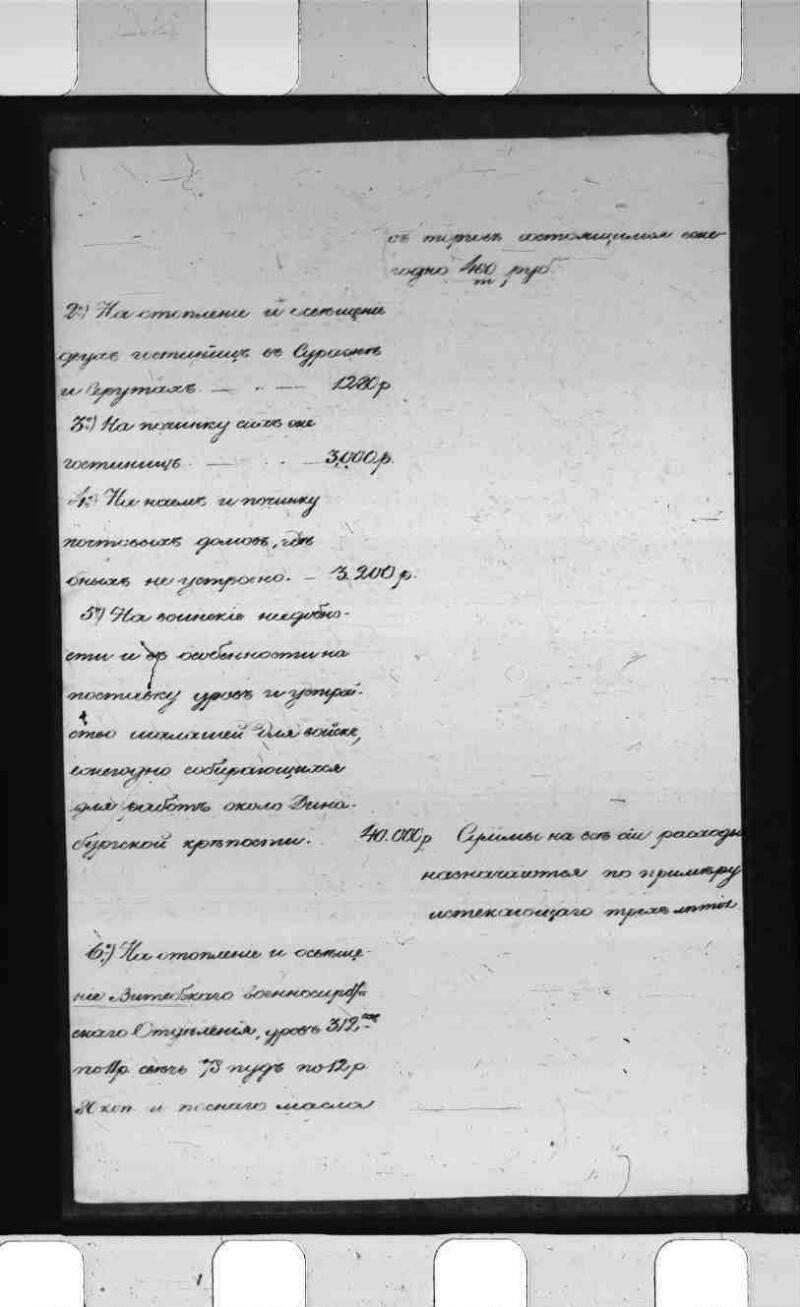 съ торговъ состоящимся еже
годно 400 руб
2.) На отопленіе и освѣщеніе
двухъ гостинницъ въ Суражѣ
и Крутахъ — . — 1280 р
3.) На починку сихъ же
гостинницъ — . — 3,000 р.
4.) На наемъ и починку
почтовыхъ домовъ, гдѣ
оныхъ не устроено. — 3.200 р.
5.) На воинскіе надобно-
сти и въ особенности на
поставку дровъ и устрой-
ство шалашей для войскъ,
ежегодно собирающихся
для работъ около Дина-
бургской крѣпости. 40.000 р
Суммы на всѣ сіи расходы
назначаются по примѣру
истекающаго трехъ лѣтія
6.) На отопленіе и освѣще-
ніе Витебскаго военносирот-
скаго Отдѣленія, дровъ 312 саж
по 11 р. свѣчь 73 пудъ по 12 р
80 коп и постнаго масла